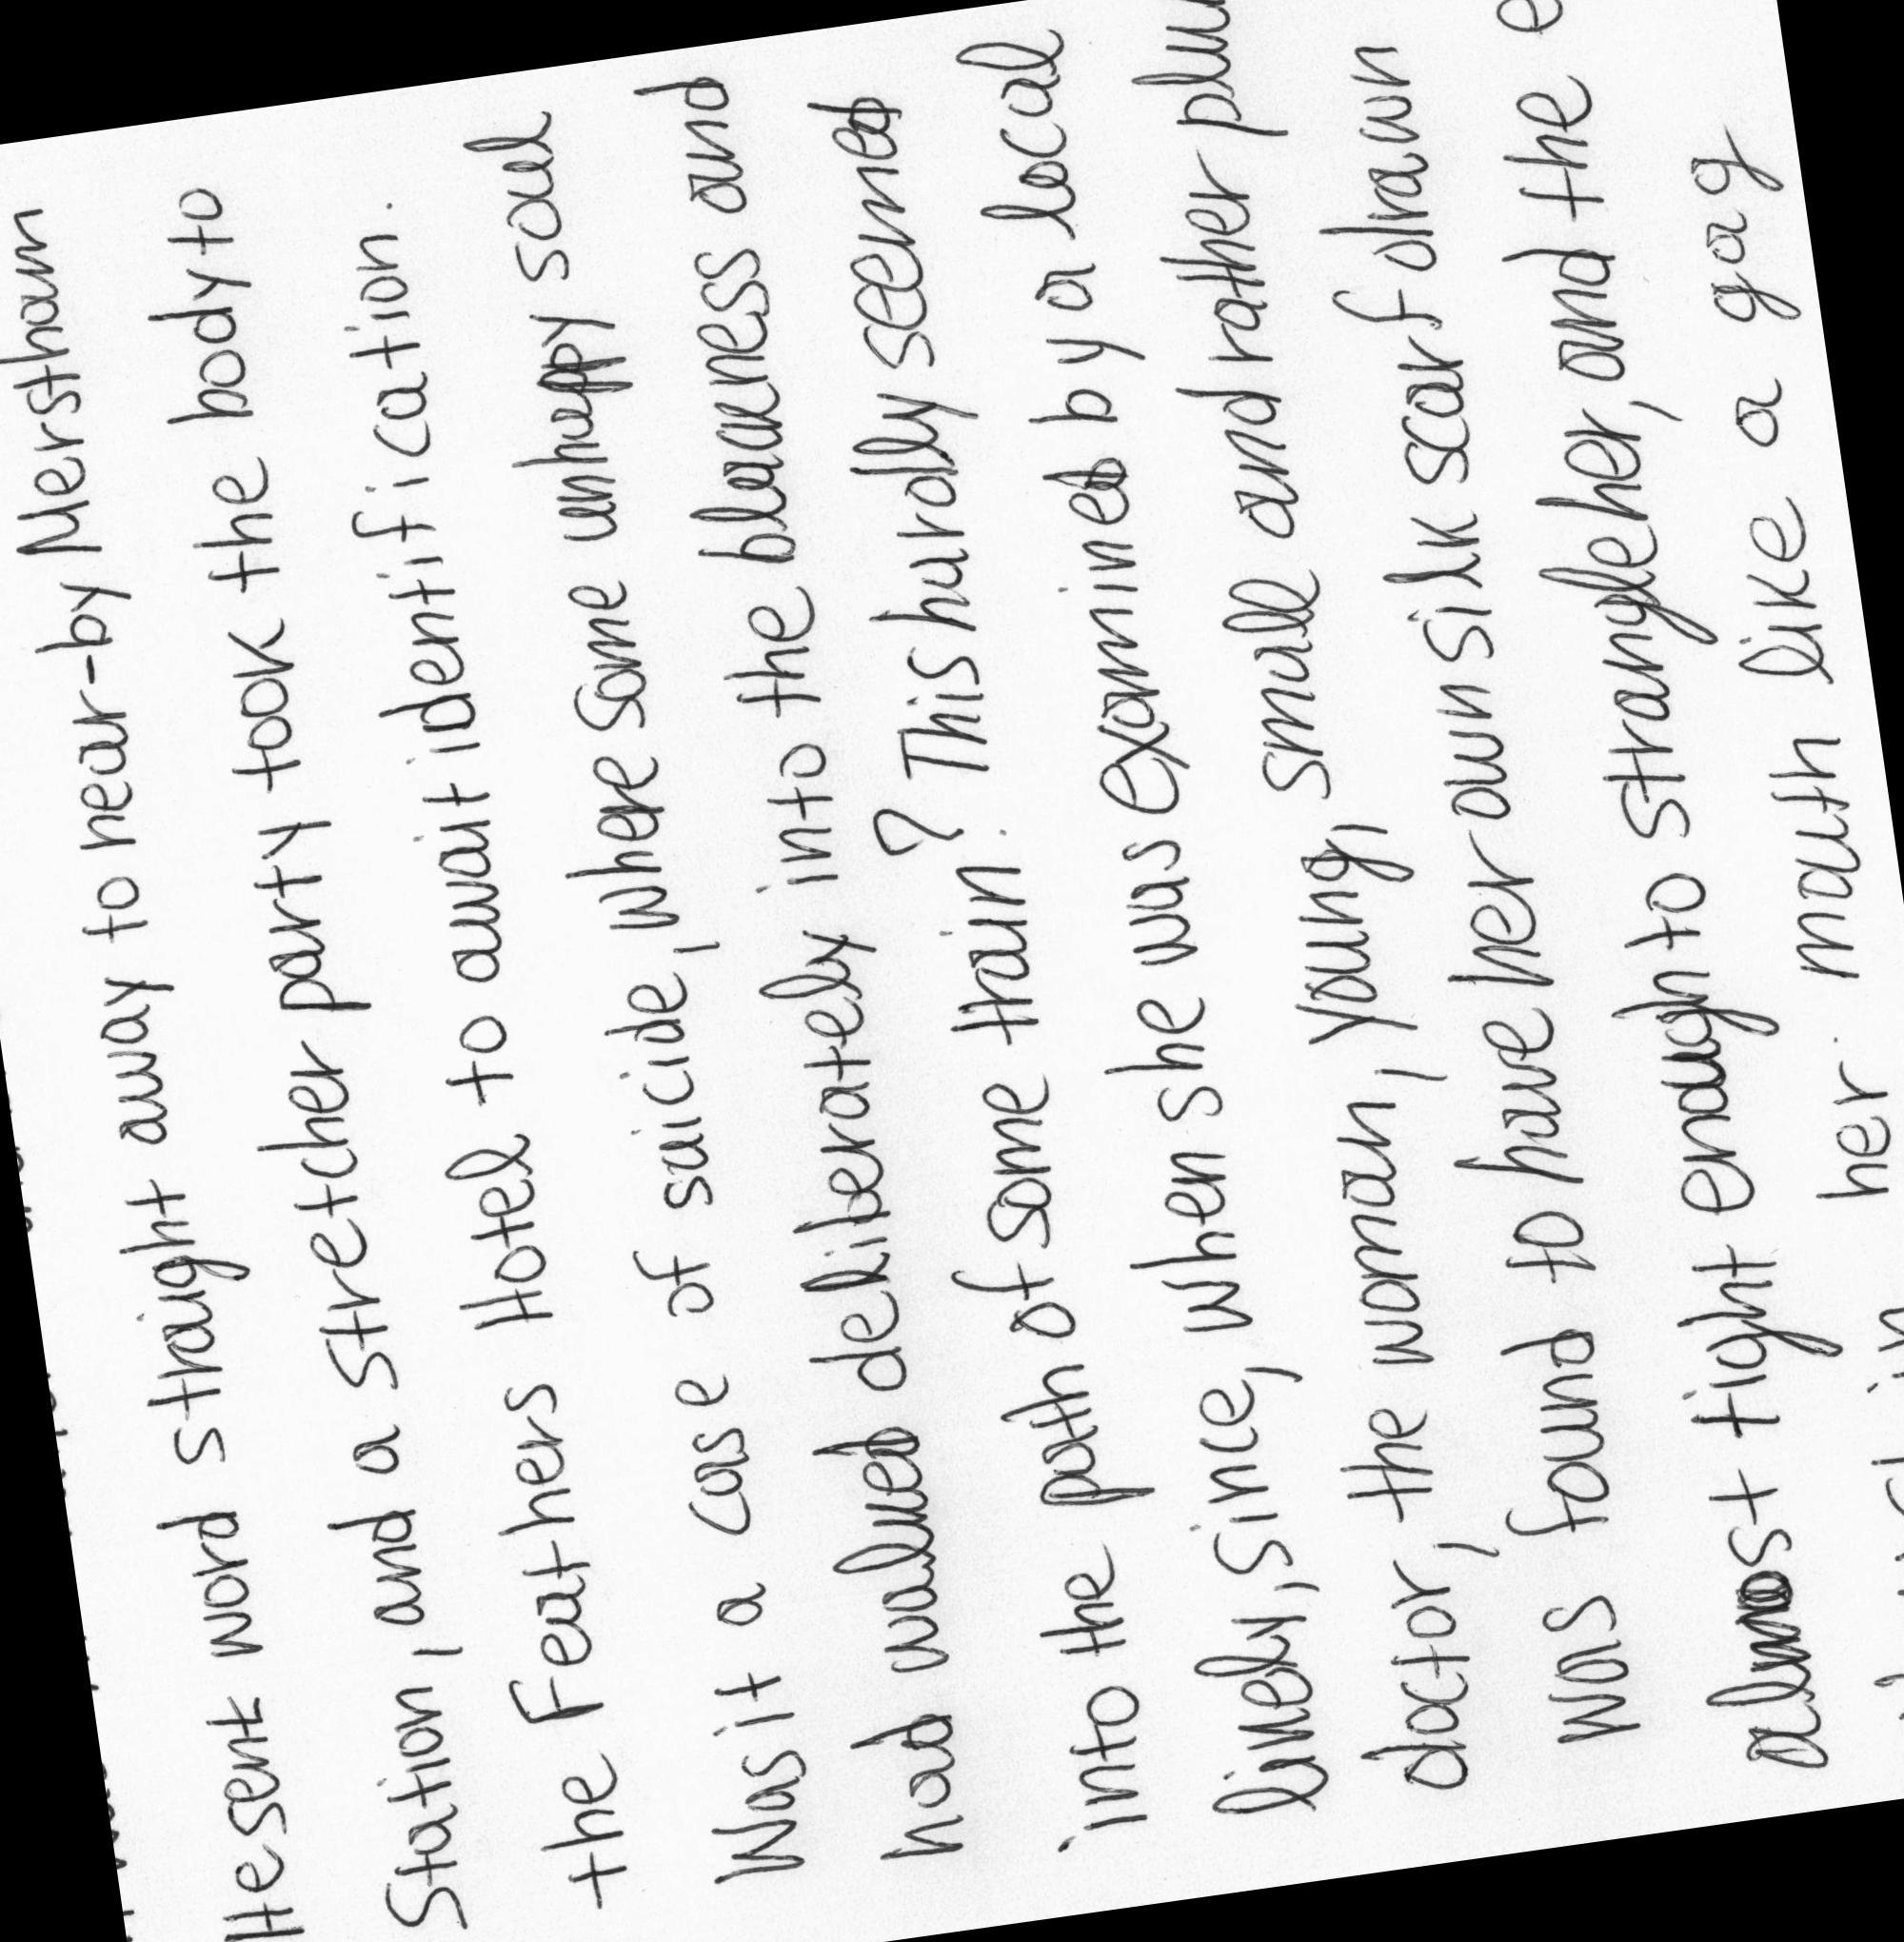 He sent word straight away to near-by Merstham
Station, and a stretcher party took the body to
the Feathers Hotel to await identification.
Was it a case of suicide, where some unhappy soul
had walked deliberately into the blackness and
into the path of some train? This hardly seemed
likely, since, when she was examined by a local
doctor, the woman, young, small and rather
was found to have her own silk scarf drawn
almost tight enough to strangle her, and the
her mouth like a gag